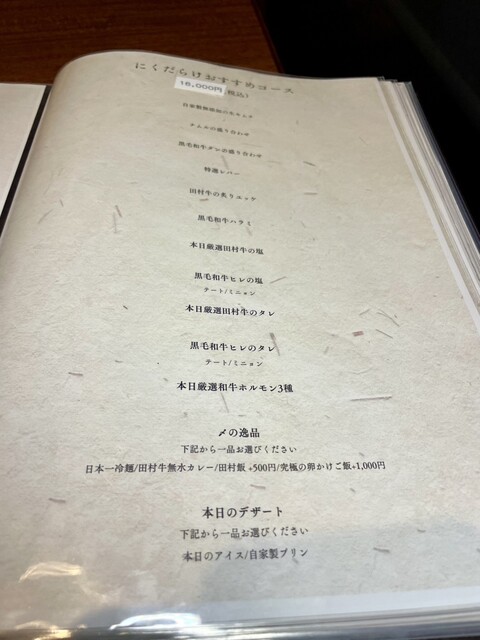 にくだらけおすすめコース
16,000円(税込)
自家製無添加の水キムチ
ナムルの盛り合わせ
黒毛和牛ダレの盛り合わせ
特選レバー
田村牛の炙りユッケ
黒毛和牛ハラミ
本日厳選田村牛の塩
黒毛和牛ヒレの塩
テート/ミニョン
本日厳選田村牛のタレ
黒毛和牛ヒレのタレ
テート/ミニョン
本日厳選和牛ホルモン3種
〆の逸品
下記から一品お選びください
日本一冷麺/田村牛無水カレー/田村飯 +500円/究極の卵かけご飯+1,000円
本日のデザート
下記から一品お選びください
本日のアイス/自家製プリン